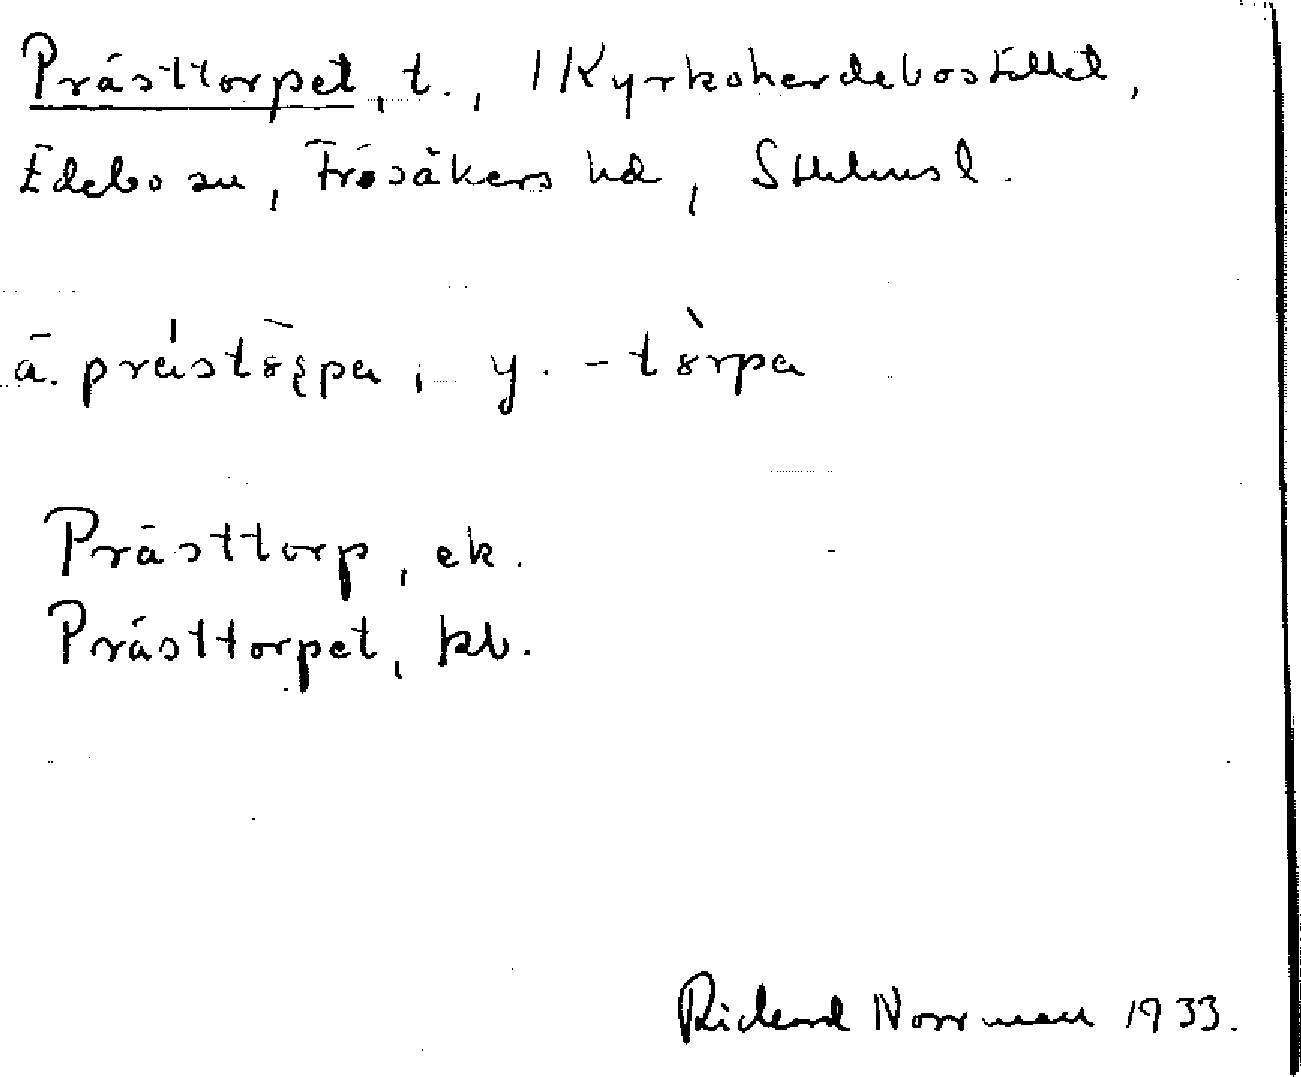 Prästtorpet, t., 1 Kyrkoherdebostället,
Edebo sn, Frösåkers hd, Sthlms l.
ä. prästorpa, y. -tòrpa
Prästtorp, ek.
Prästtorpet, kb.
Rickard Norrman 1933.